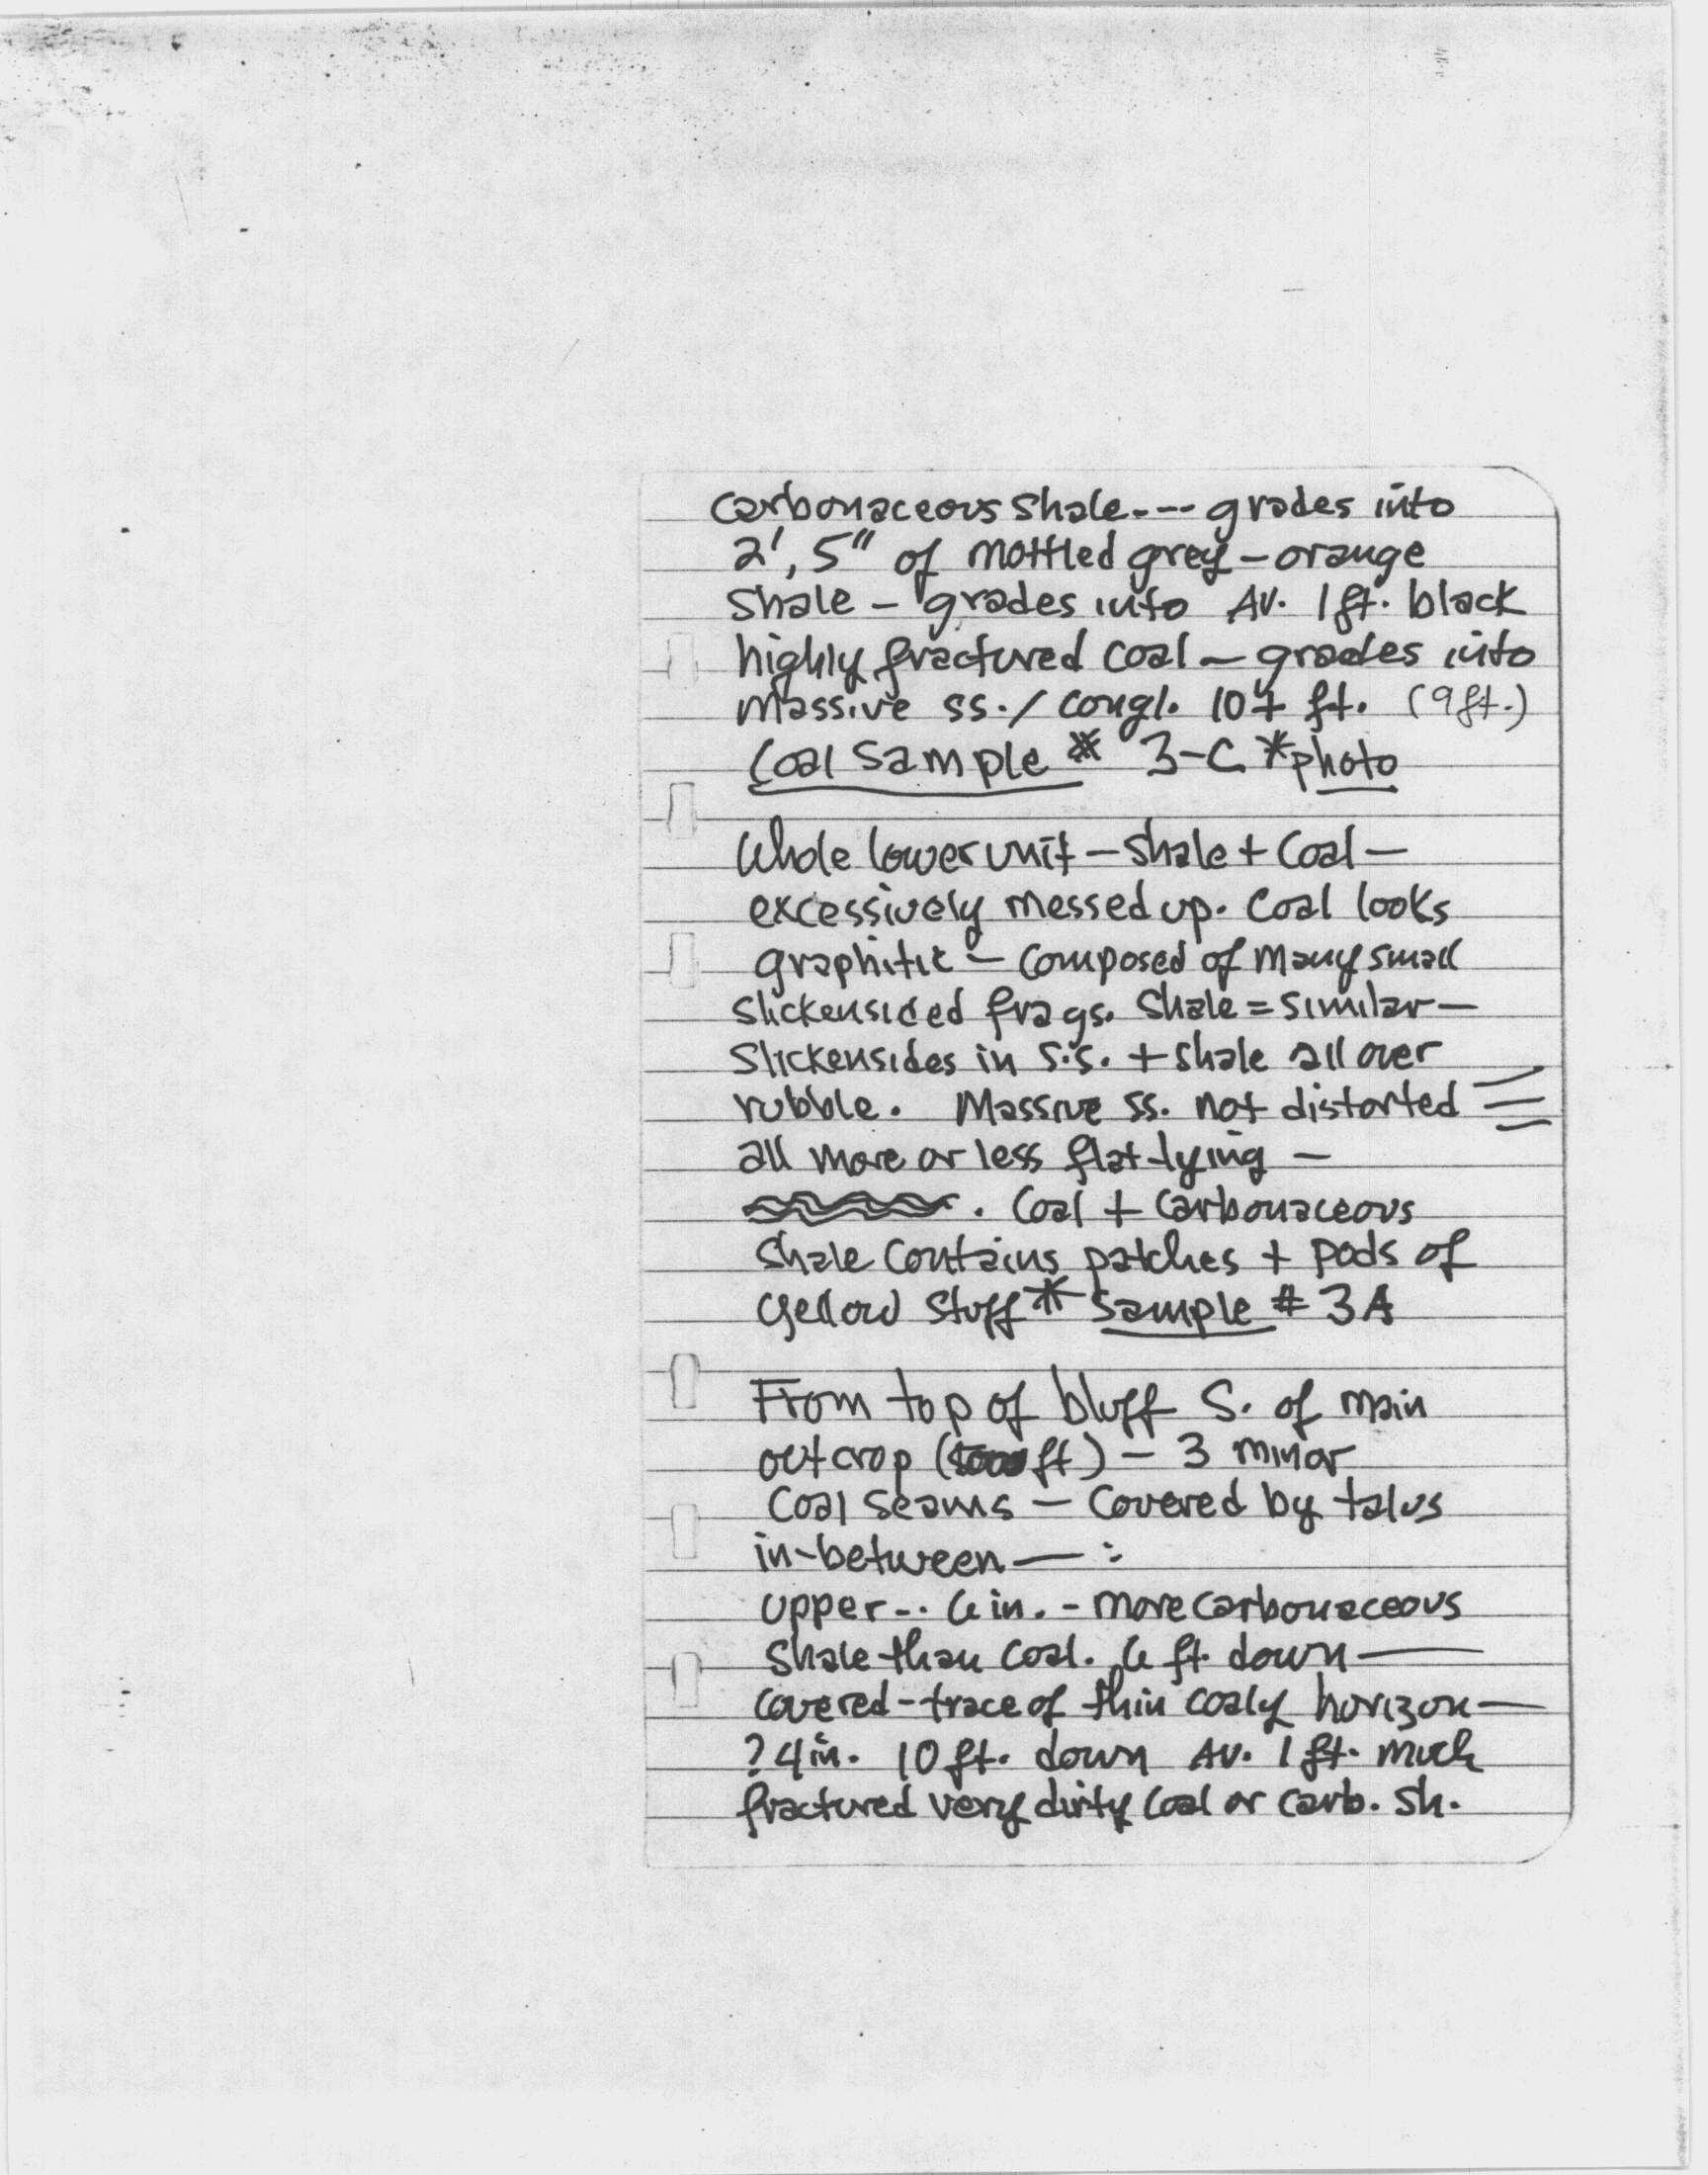 Carbonaceous Shale---- grades into
2', 5" of mottled grey - orange
Shale - grades into Av. 1 ft. black
highly fractured coal - grades into
Massive ss./ congl. 10± ft. (9ft.)
Coal Sample # 3-C *photo
Whole lower unit - Shale + Coal -
excessively messed up. Coal looks
graphitic - composed of many small
slickensided frags. Shale = similar -
Slickensides in s.s. + shale all over
rubble. Massive ss. not distorted
all more or less flat-lying -
. Coal + Carbonaceous
Shale contains patches + pods of
yellow stuff * Sample # 3A
From top of bluff S. of main
outcrop ( ft) - 3 minor
Coal Seams - Covered by talus
in-between - :
Upper -. 6 in. - more carbonaceous
Shale than coal. 6 ft. down -
covered - trace of thin coaly horizon -
? 4 in. 10 ft. down Av. 1 ft. much
fractured very dirty coal or carb. sh.